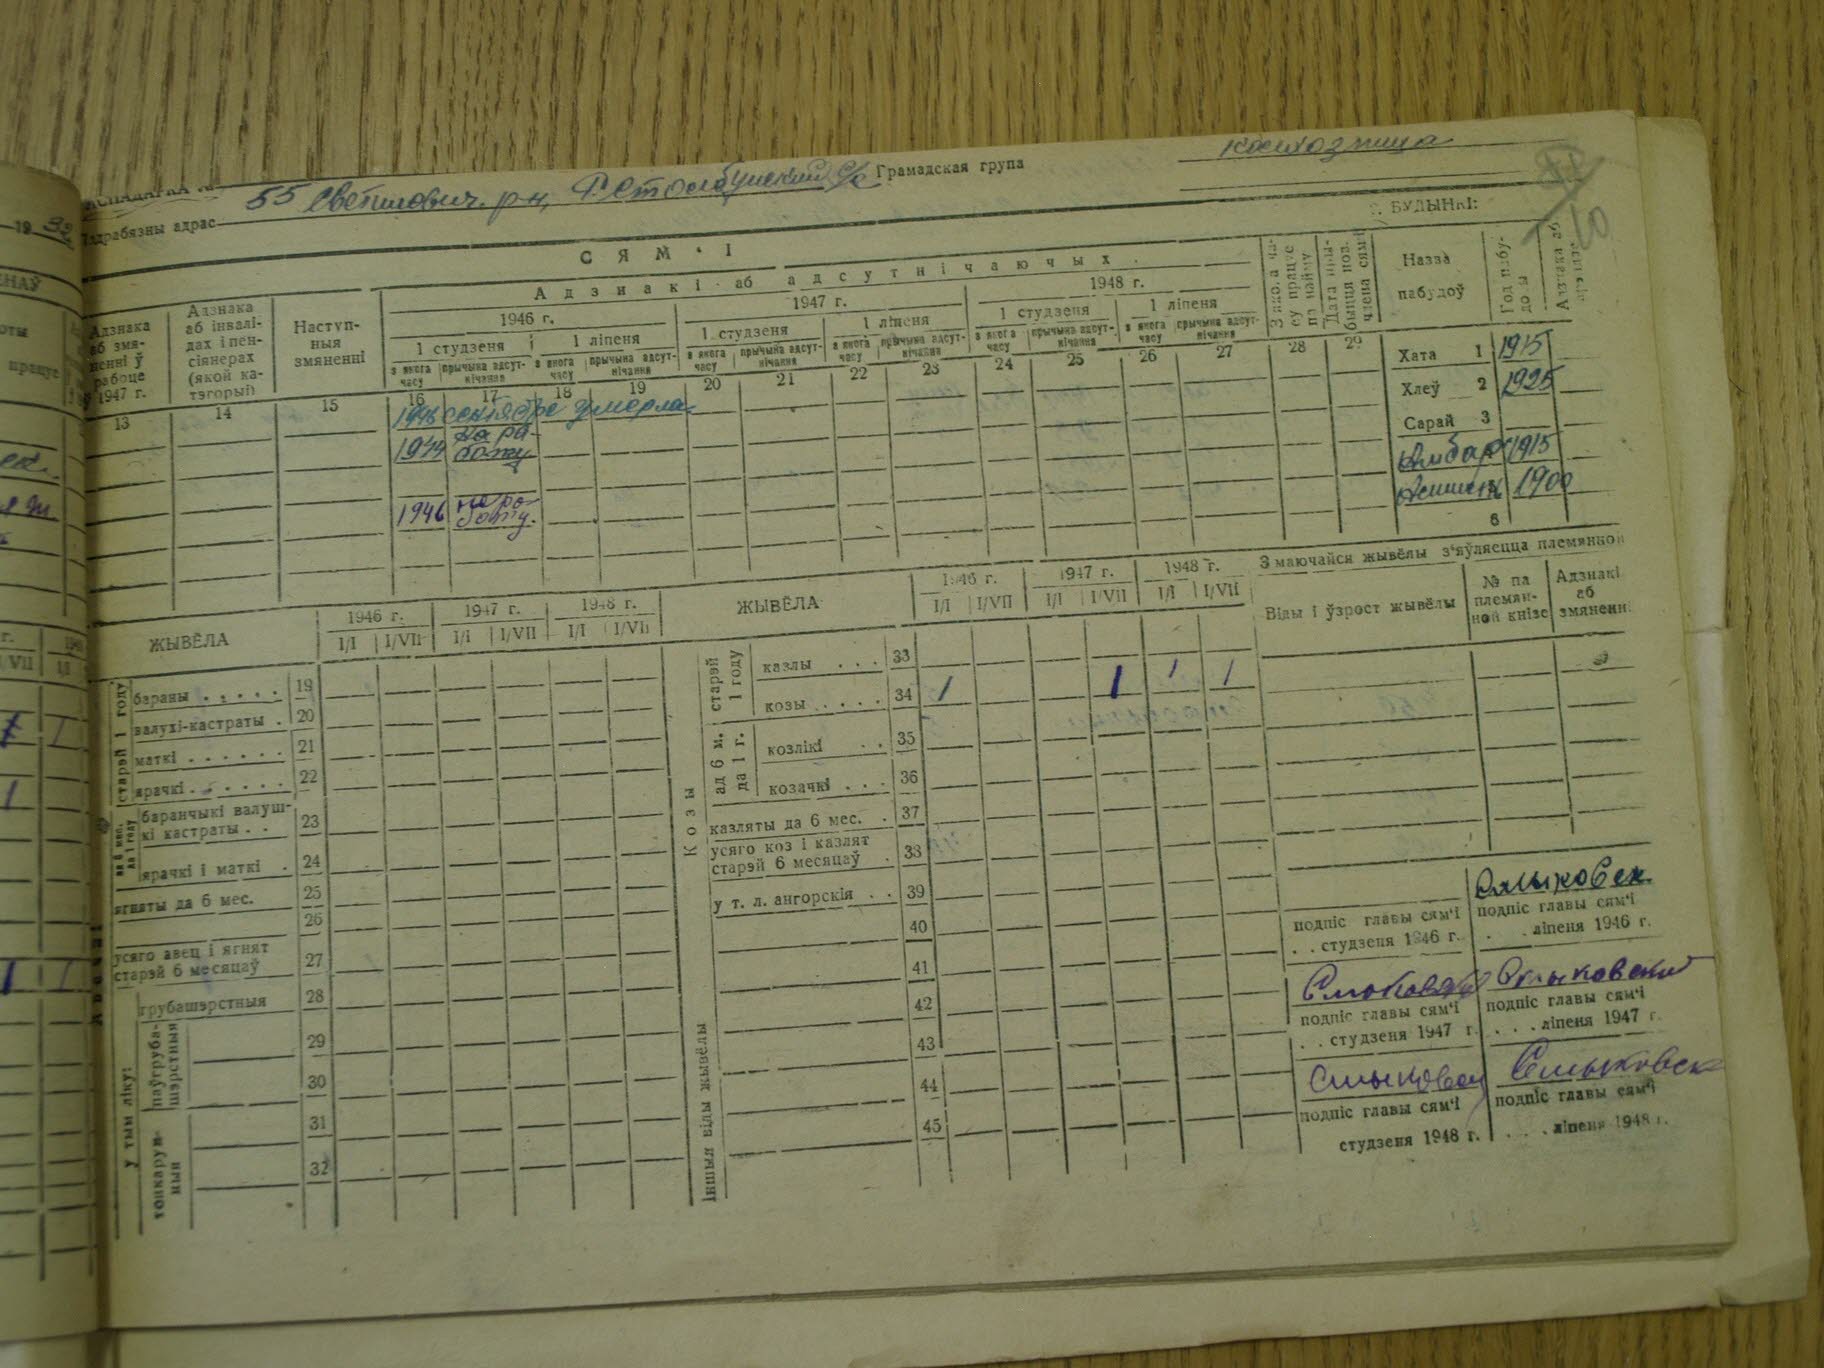 55 Светилович. р-н, Р. Столбунский с/с Грамадская група колхозница
адрас
С. БУДЫНКІ:
СЯМ'І
Адзнакі аб адсутнічаючых
1946 г. 1947 г. 1948 г.
1 студзеня 1 ліпеня 1 студзеня 1 ліпеня 1 студзеня 1 ліпеня
з якога часу прычына адсутнічання з якога часу прычына адсутнічання з якога часу прычына адсутнічання з якога часу прычына адсутнічання з якога часу прычына адсутнічання з якога часу прычына адсутнічання
Адзнака аб змяненні ў рабоце 1947 г.
Адзнака аб інвалідах і пенсіянерах (якой катэгорыі)
Наступныя змяненні
Назва пабудоў
13 14 15 16 17 18 19 20 21 22 23 24 25 26 27 28 29
Хата 1 1915
Хлеў 2 1925
Сарай 3
Амбар 1915
1900
6
сентябре умерла
1944 на работу
1946 на работу.
ЖЫВЁЛА 1946 г. 1947 г. 1948 г.
I/I I/VII I/I I/VII I/I I/VII
старэй 1 году
бараны . . . . . 19
валухі-кастраты . 20
маткі . . . . . . 21
ярачкі . . . . . . 22
баранчыкі валушкі кастраты . . 23
ярачкі і маткі . 24
ягняты да 6 мес. 25
26
усяго авец і ягнят старэй 6 месяцаў 27
у тым ліку:
грубашэрстныя 28
паўгрубашэрстныя
29
30
тонкарунныя
31
32
ЖЫВЁЛА 1946 г. 1947 г. 1948 г.
I/I I/VII I/I I/VII I/I I/VII
Козы
старэй 1 году
казлы . . . 33
козы . . . . . 34 1 1 1 1
ад 6 м. да 1 г.
козлікі . . 35
козачкі . . . 36
казляты да 6 мес. . 37
усяго коз і казлят старэй 6 месяцаў . 38
у т. л. ангорскія . . 39
Іншыя віды жывёлы
40
41
42
43
44
45
З маючайся жывёлы з'яўляецца племянной
Віды і ўзрост жывёлы
№ па племянной кнізе
Адзнакі аб змяненні
подпіс главы сям'і
. . студзеня 1946 г.
Смыковск
подпіс главы сям'і
. . ліпеня 1946 г.
подпіс главы сям'і
. . студзеня 1947 г.
Смыковский
подпіс главы сям'і
. . . ліпеня 1947 г.
Смыковск
подпіс главы сям'і
студзеня 1948 г.
Смыковск
подпіс главы сям'і
. . . ліпеня 1948 г.